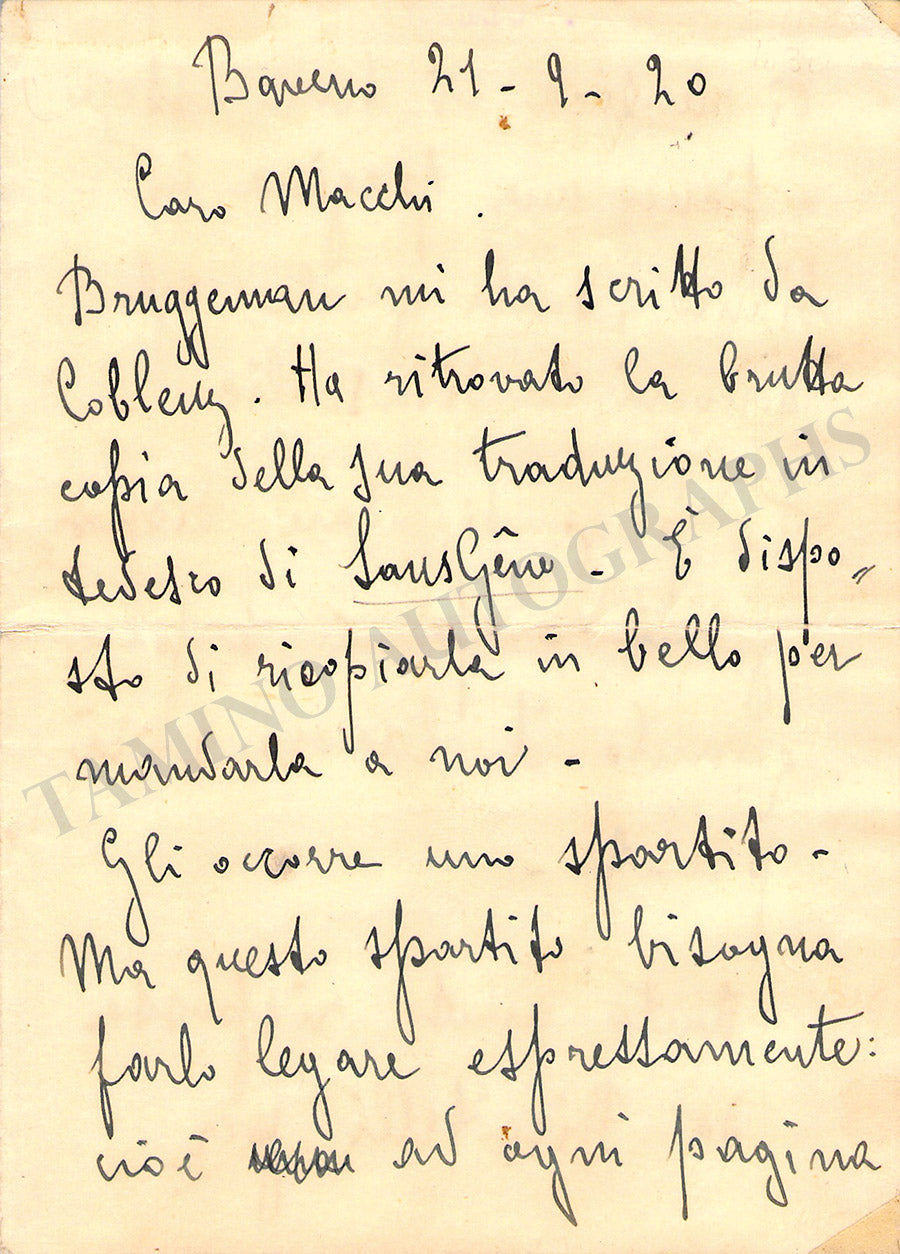 Baveno 21 - 9 - 20
Caro Macchi.
Bruggeman mi ha scritto da
Coblenz. Ha ritrovato la brutta
copia della sua traduzione in
tedesco di SansGêne - È dispo„
sto di ricopiarla in bello per
mandarla a noi -
Gli occorre uno spartito -
Ma questo spartito bisogna
farlo legare espressamente:
cioè ad ogni pagina
TAMINO AUTOGRAPHS